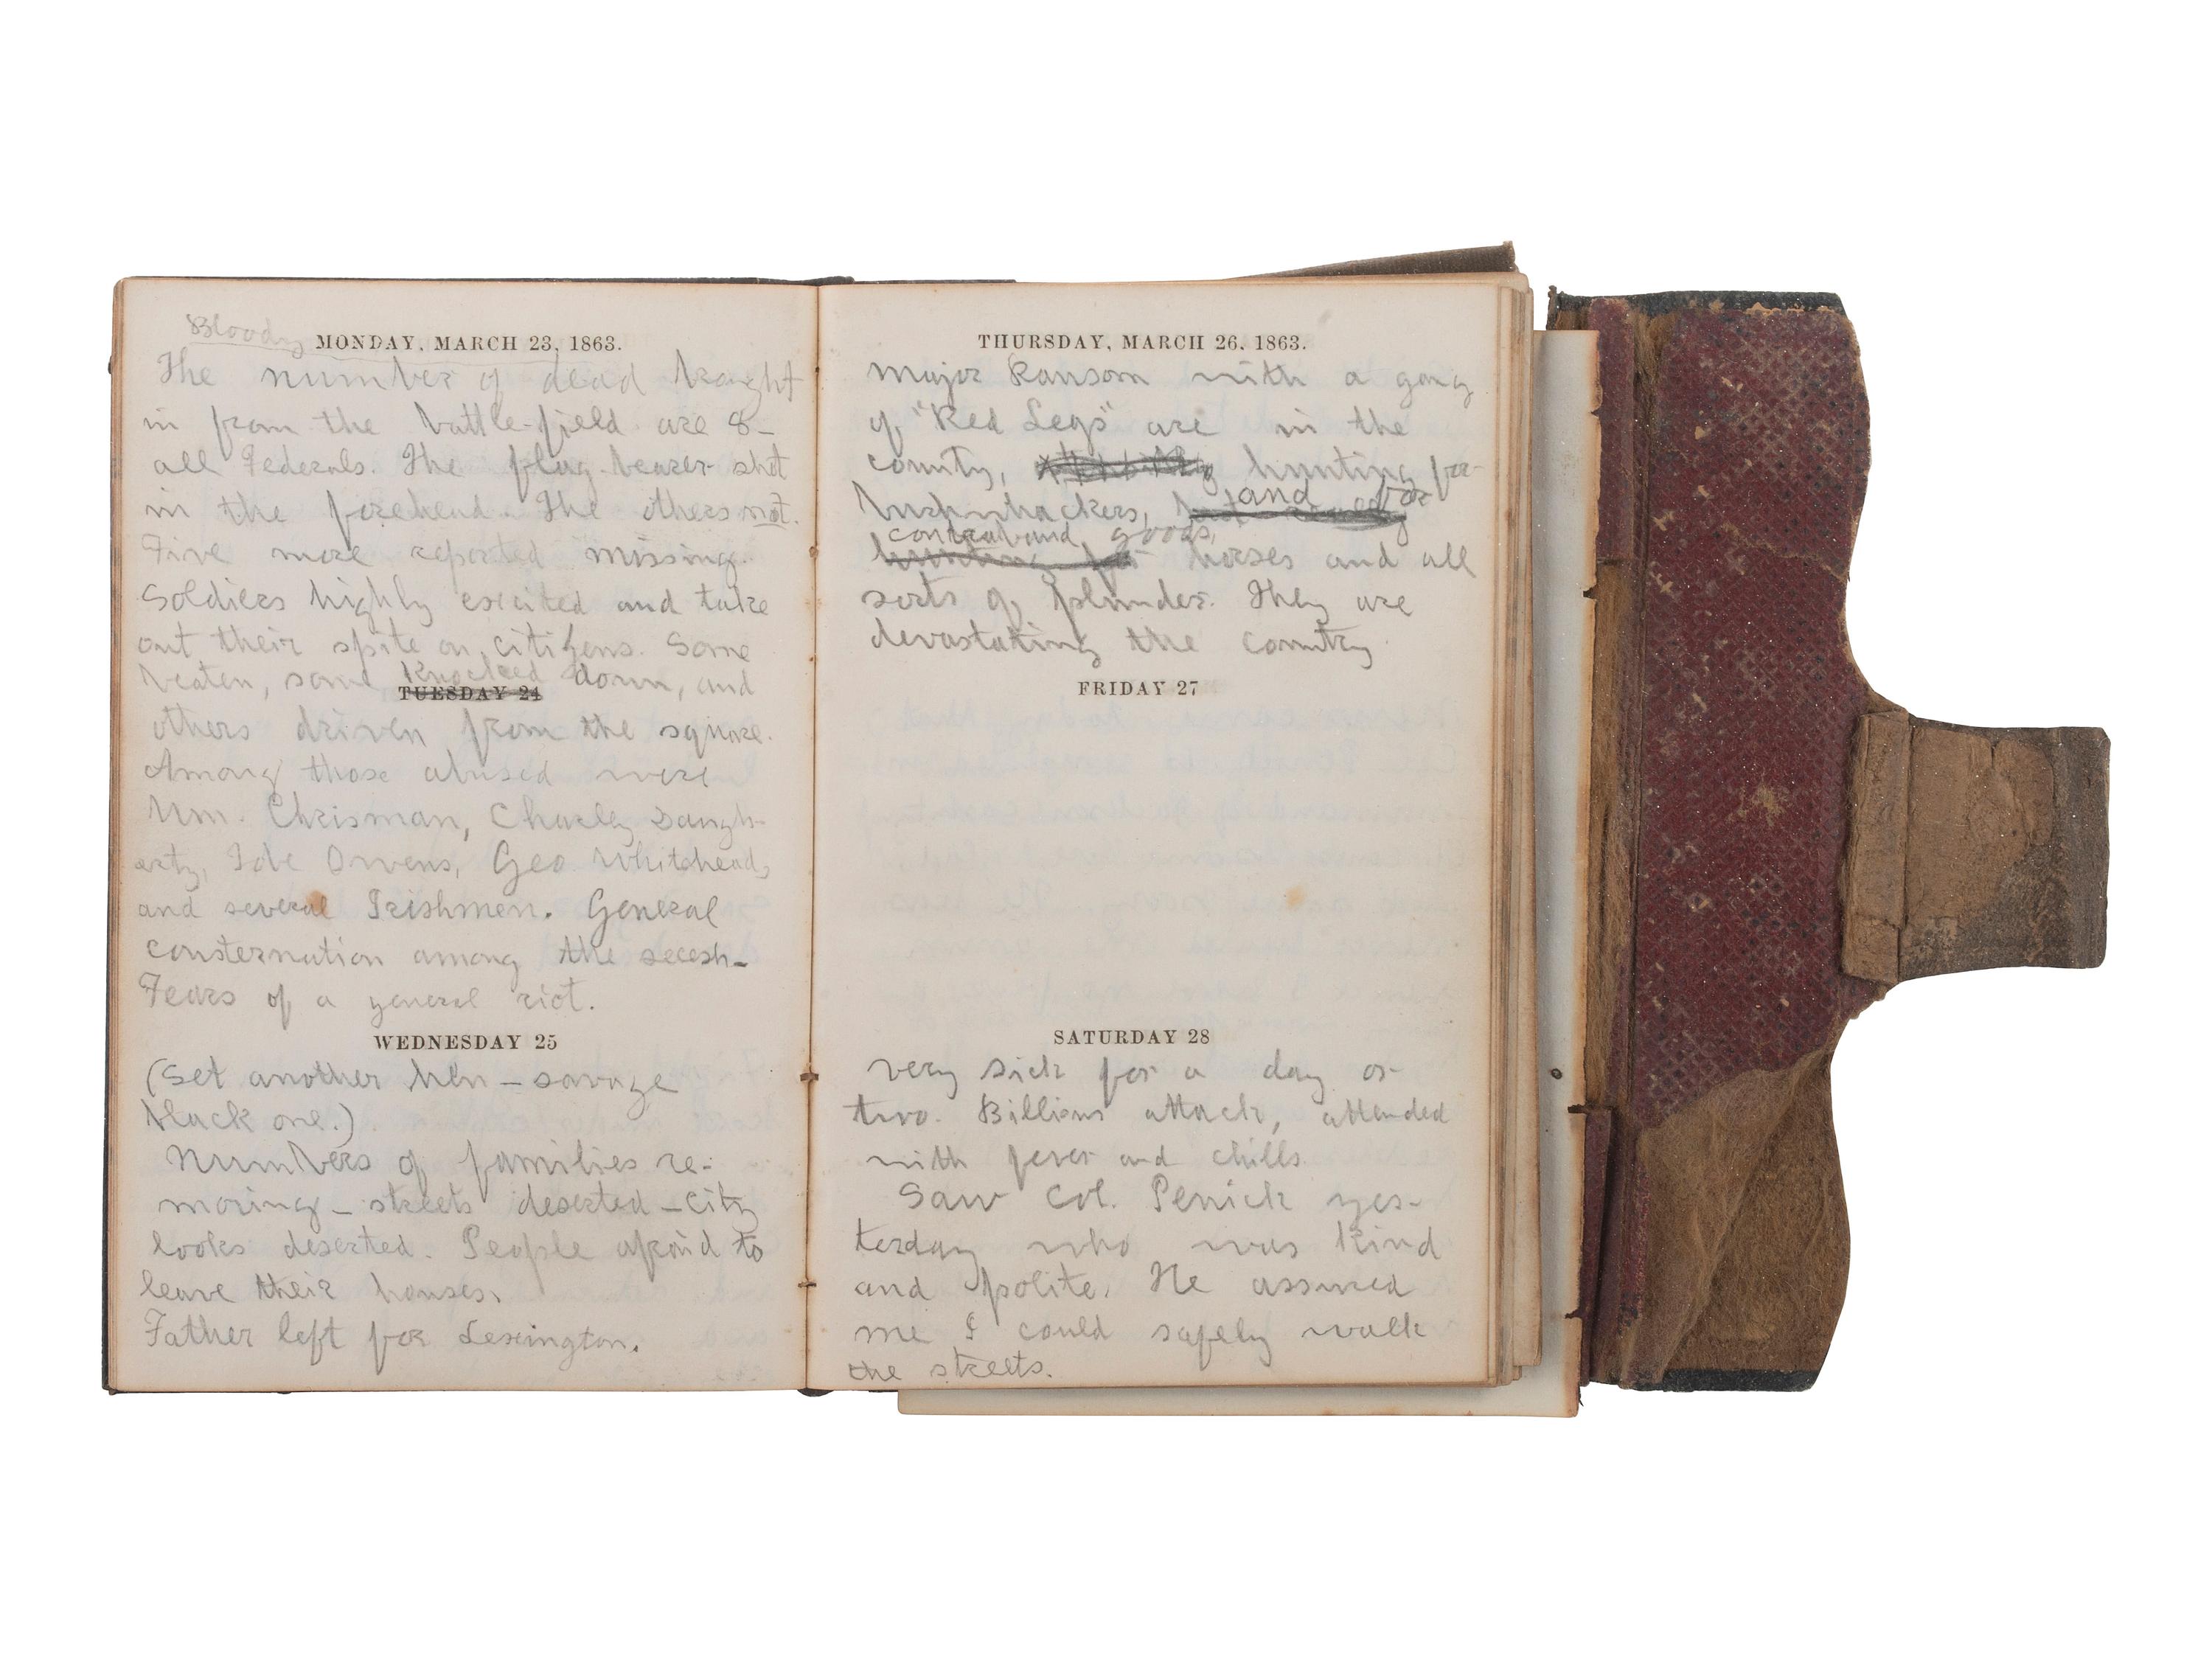 Bloody
MONDAY, MARCH 23, 1863.
The number of dead brought
in from the battle-field are 8–
all Federals. The flag-bearer shot
in the forehead. The others not.
Five more reported missing.
Soldiers highly excited and take
out their spite on citizens. Some
beaten, some knocked down, and
TUESDAY 24
others driven from the square.
Among those abused were
Wm. Chrisman, Charley Daugh-
erty, Ide Owens, Geo. Whitehead,
and several Irishmen. General
consternation among the secesh–
Fears of a general riot.
WEDNESDAY 25
(Set another hen – savage
black one.)
Numbers of families re-
moving – streets deserted – city
looks deserted. People afraid to
leave their houses.
Father left for Lexington.
THURSDAY, MARCH 26, 1863.
Major Ransom with a gang
of "Red Legs" are in the
county, hunting for
bushwhackers, and for
contraband goods,
hunting for horses and all
sorts of plunder. They are
devastating the country
FRIDAY 27
SATURDAY 28
very sick for a day or
two. Billious attack, attended
with fever and chills.
Saw Col. Penick yes-
terday who was kind
and polite. He assured
me I could safely walk
the streets.